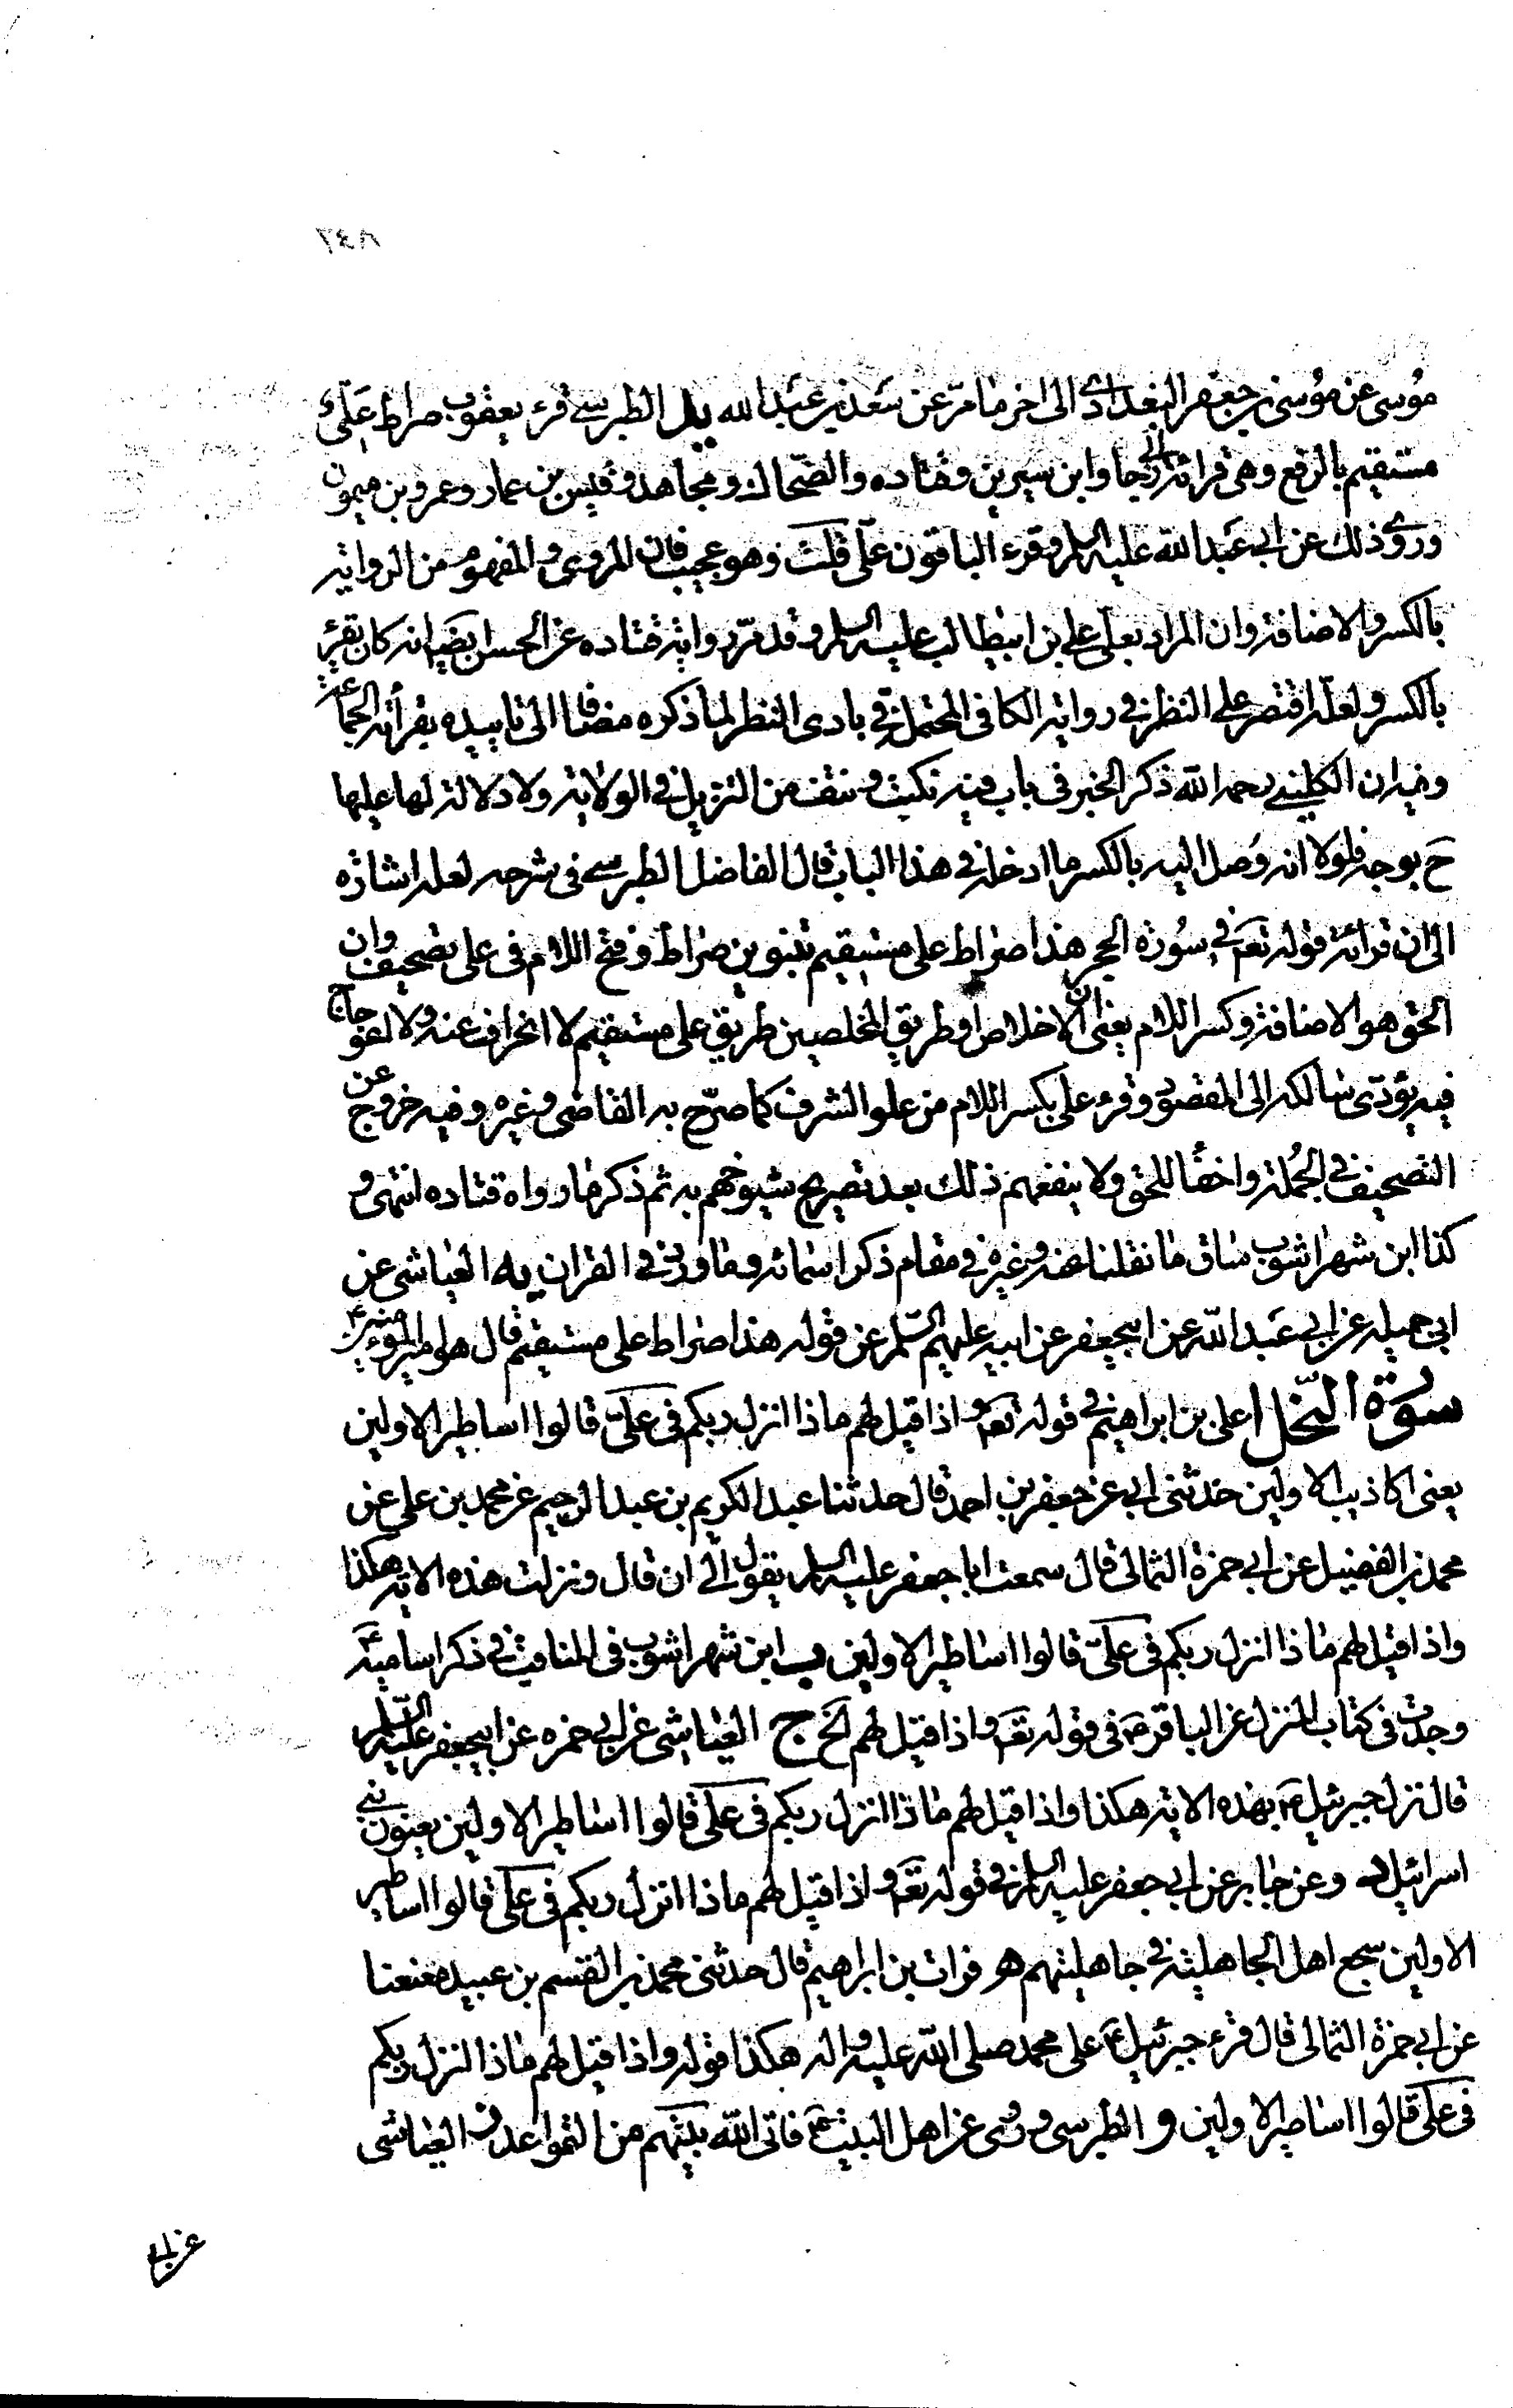 ٢٤٨
موسى عن موسى بن جعفر البغدادى الى اخر ما مرّ عن سعد بن عبد الله يد الطبرسى قرء يعقوب صراط عَلِىٌّ
مستقيم بالرفع وهى قرائة ابى رجا وابن سيرين وقتاده والضحاك ومجاهد وقيس بن عمار وعمرو بن ميمون
وروى ذلك عن ابى عبد الله عليه السلم وقرء الباقون علىّ قلت وهو عجيب فان المروى والمفهوم من الرواية
بالكسر والاضافة وان المراد بعلى على بن ابيطالب عليه السلم وقد مرّ رواية قتاده عن الحسن البصرى انه كان يقرئ
بالكسر ولعله اقتصر على النظر فى رواية الكافى المحتمل فى بادى النظر لما ذكره مضافا الى تاييده بقرائة الجماعة
وفيه ان الكلينى رحمه الله ذكر الخبر فى باب فيه نكت ونتف من التنزيل فى الولاية ولا دلالة لها عليها
ح بوجه فلولا انه وصل اليه بالكسر ما ادخله فى هذا الباب قال الفاضل الطبرسى فى شرحه لعله اشارة
الى ان قرائة قوله تعَ فى سورة الحجر هذا صراط على مستقيم بتنوين صراط وفتح اللام فى على تصحيف وان
الحق هو الاضافة وكسر اللام يعنى ان الاخلاص او طريق المخلصين طريق على مستقيم لا انحراف عنه ولا اعوجاج
فيه يؤدّى سالكه الى المقصود وقرء على بكسر اللام من علو الشرف كما صرّح به القاضى وغيره وفيه خروج عن
التصحيف فى الجملة واخفا للحق ولا ينفعهم ذلك بعد تصريح شيوخهم به ثم ذكر ما رواه قتاده انتهى و
كذا ابن شهراشوب ساق ما نقلنا عنه وغيره فى مقام ذكر اسمائه وما ورد فى القران يه العياشى عن
ابى جميله عن ابى عبد الله عن ابيجعفر عن ابيه عليهم السّلم عن قوله هذا صراط على مستقيم قال هو امير المؤمنين ع
سورة النّحل ا على بن ابراهيم فى قوله تعَ واذا قيل لهم ماذا انزل ربكم فى علىّ قالوا اساطير الاولين
يعنى اكاذيب الاولين حدثنى ابى عن جعفر بن احمد قال حدثنا عبد الكريم بن عبد الرحيم عن محمد بن على عن
محمد بن الفضيل عن ابى حمزة الثمالى قال سمعت ابا جعفر عليه السلم يقول الى ان قال ونزلت هذه الاية هكذا
واذا قيل لهم ماذا انزل ربكم فى علىّ قالوا اساطير الاولين ب ابن شهراشوب فى المناقب فى ذكر اساميه ع
وجدت فى كتاب المنزل عن الباقر ع فى قوله تعَ واذا قيل لهم الخ ج العياشى عن ابى حمزه عن ابيجعفر عليه السّلم
قال نزل جبرئيل ع بهذه الاية هكذا واذا قيل لهم ماذا انزل ربكم فى على قالوا اساطير الاولين يعنون بنى
اسرائيل د وعن جابر عن ابى جعفر عليه السلم فى قوله تعَ واذا قيل لهم ماذا انزل ربكم فى على قالوا اساطير
الاولين سجع اهل الجاهلية فى جاهليتهم ه فرات بن ابراهيم قال حدثنى محمد بن القسم بن عبيد معنعنا
عن ابى حمزة الثمالى قال قرء جبرئيل ع على محمد صلى الله عليه واله هكذا قوله واذا قيل لهم ماذا انزل ربكم
فى على قالوا اساطير الاولين و الطبرسى وروى عن اهل البيت ع فاتى الله بيتهم من القواعد ز العياشى
عن ابى